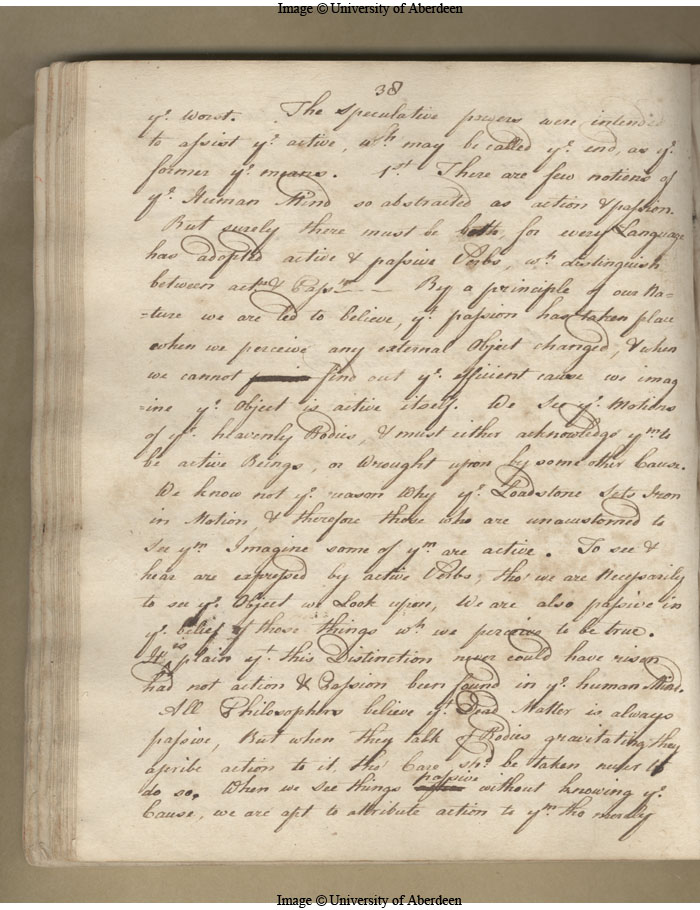 Image © University of Aberdeen
38
ye. worst. The speculative powers were intended
to assist ye. active, wch may be called ye. end, as ye.
former ye. means. 1st There are few notions of
ye. Human Mind so abstracted as action & passion.
But surely there must be both, for every Language
has adopted active & passive Verbs, wch. distinguish
between actn & Passn
By a principle of our Na-
-ture we are led to believe, yt. passion has taken place
when we perceive any external Object changed, & when
we cannot find out ye. efficient cause we imag
-ine ye. Object is active itself. We see ye. Motions
of ye. heavenly Bodies, & must either acknowledge ym. to
be active Beings, or Wrought upon by some other Cause.
We know not ye. reason Why ye. Loadstone sets Iron
in Motion, & therefore those who are unacustomed to
see ym Imagine some of ym are active. To see &
hear are expressed by active Verbs, tho' we are Necessarily
to see ye. Object we Look upon, We are also passive in
ye. belief of those things wch we perceive to be true.
It is plain yt. this Distinction never could have risen
had not action & Passion been found in ye. human Mind.
All Philosophers believe yt. Dead Matter is always
passive, But when they talk of Bodies gravitating they
ascribe action to it, tho' Care shd. be taken never to
do so. When we see things passive without knowing ye.
Cause, we are apt to attribute action to ym tho merely
Image © University of Aberdeen